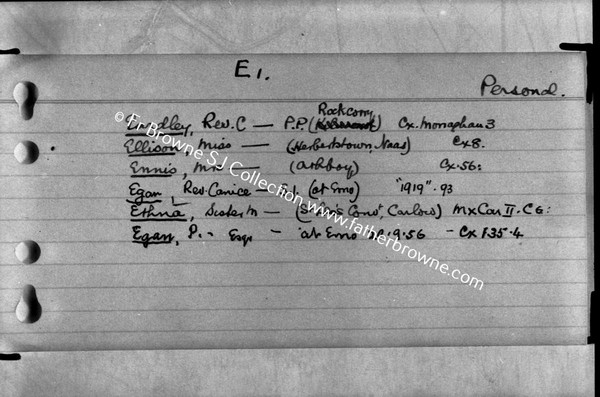 E 1.
Personal.
Rockcorry
Rev. C — P.P. ( ) Cx. Monaghan 3
Ellison, Miss — (Herbertstown, Naas) Cx 8.
Ennis, Mr — (Athboy) Cx. 56:
Egan, Rev. Canice — S.J. (at Emo) "1919". 93
Ethna, Sister M — Carlow) MxCar II. C6:
Egan, P. - Esq. - at Emo .9.56 - Cx F35.4
© Fr Browne SJ Collection www.fatherbrowne.com